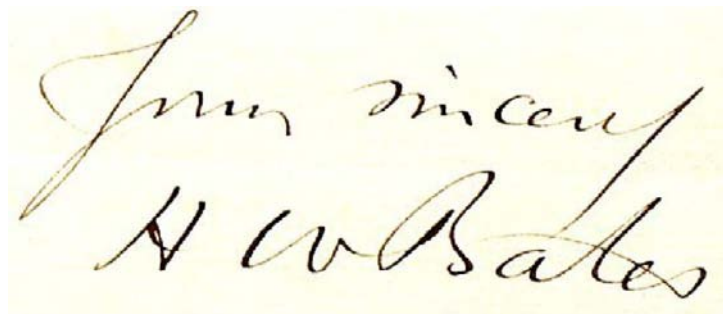 Yours sincerely
H W Bates